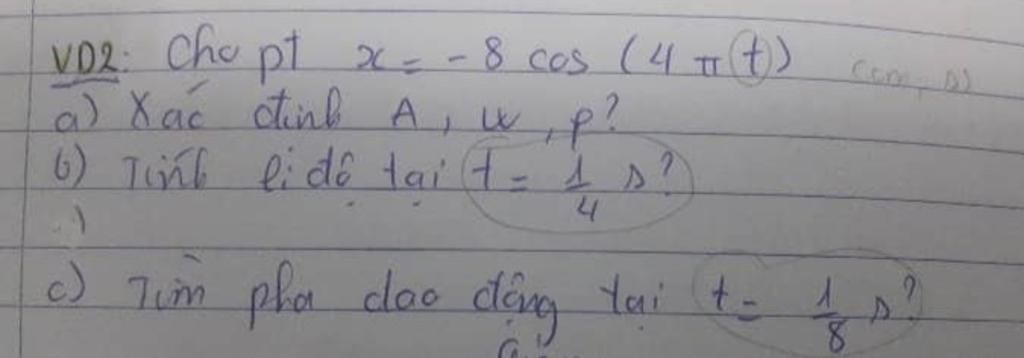 VD2: Cho pt x = - 8 cos (4 π t) (cm, s)
a) Xác định A, w, φ?
b) Tính li độ tại t = 1/4 s?
c) Tìm pha dao động tại t = 1/8 s?